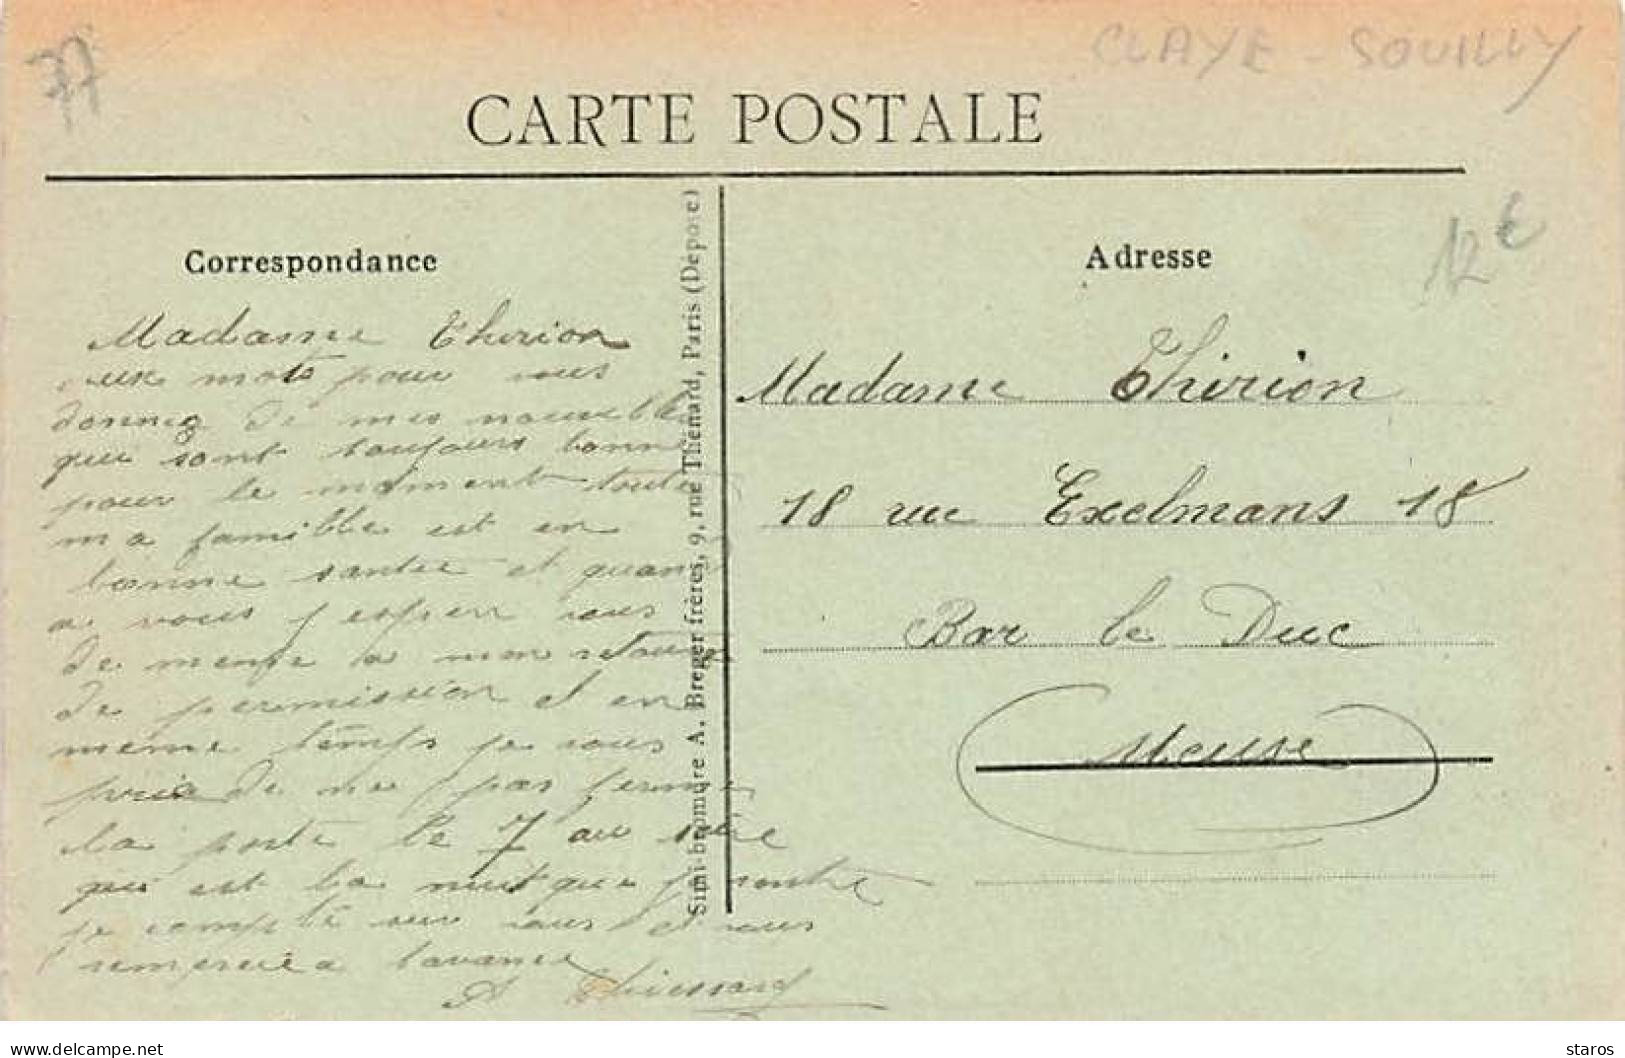 77
CLAYE - SOUILLY
CARTE POSTALE
12 €
Correspondance
Madame Thirion
deux mots pour vous
donnez de mes nouvelles
qui sont toujours bonne
pour le moment toute
ma famille est en
bonne santée et quand
a vous j'esper vous
de meme a mon retour
de permission et en
meme temps je vous
prie de me pas fermé
la porte le 7 au soir
qui est la nuit que je rentre
je compte sur vous et vous
remercie a lavance
A Thiessard
Simi-bromure A. Breger frères, 9, rue Thénard, Paris (Déposé)
Adresse
Madame Thirion
18 rue Exelmans 18
Bar le Duc
Meuse
delcampe.net
staros